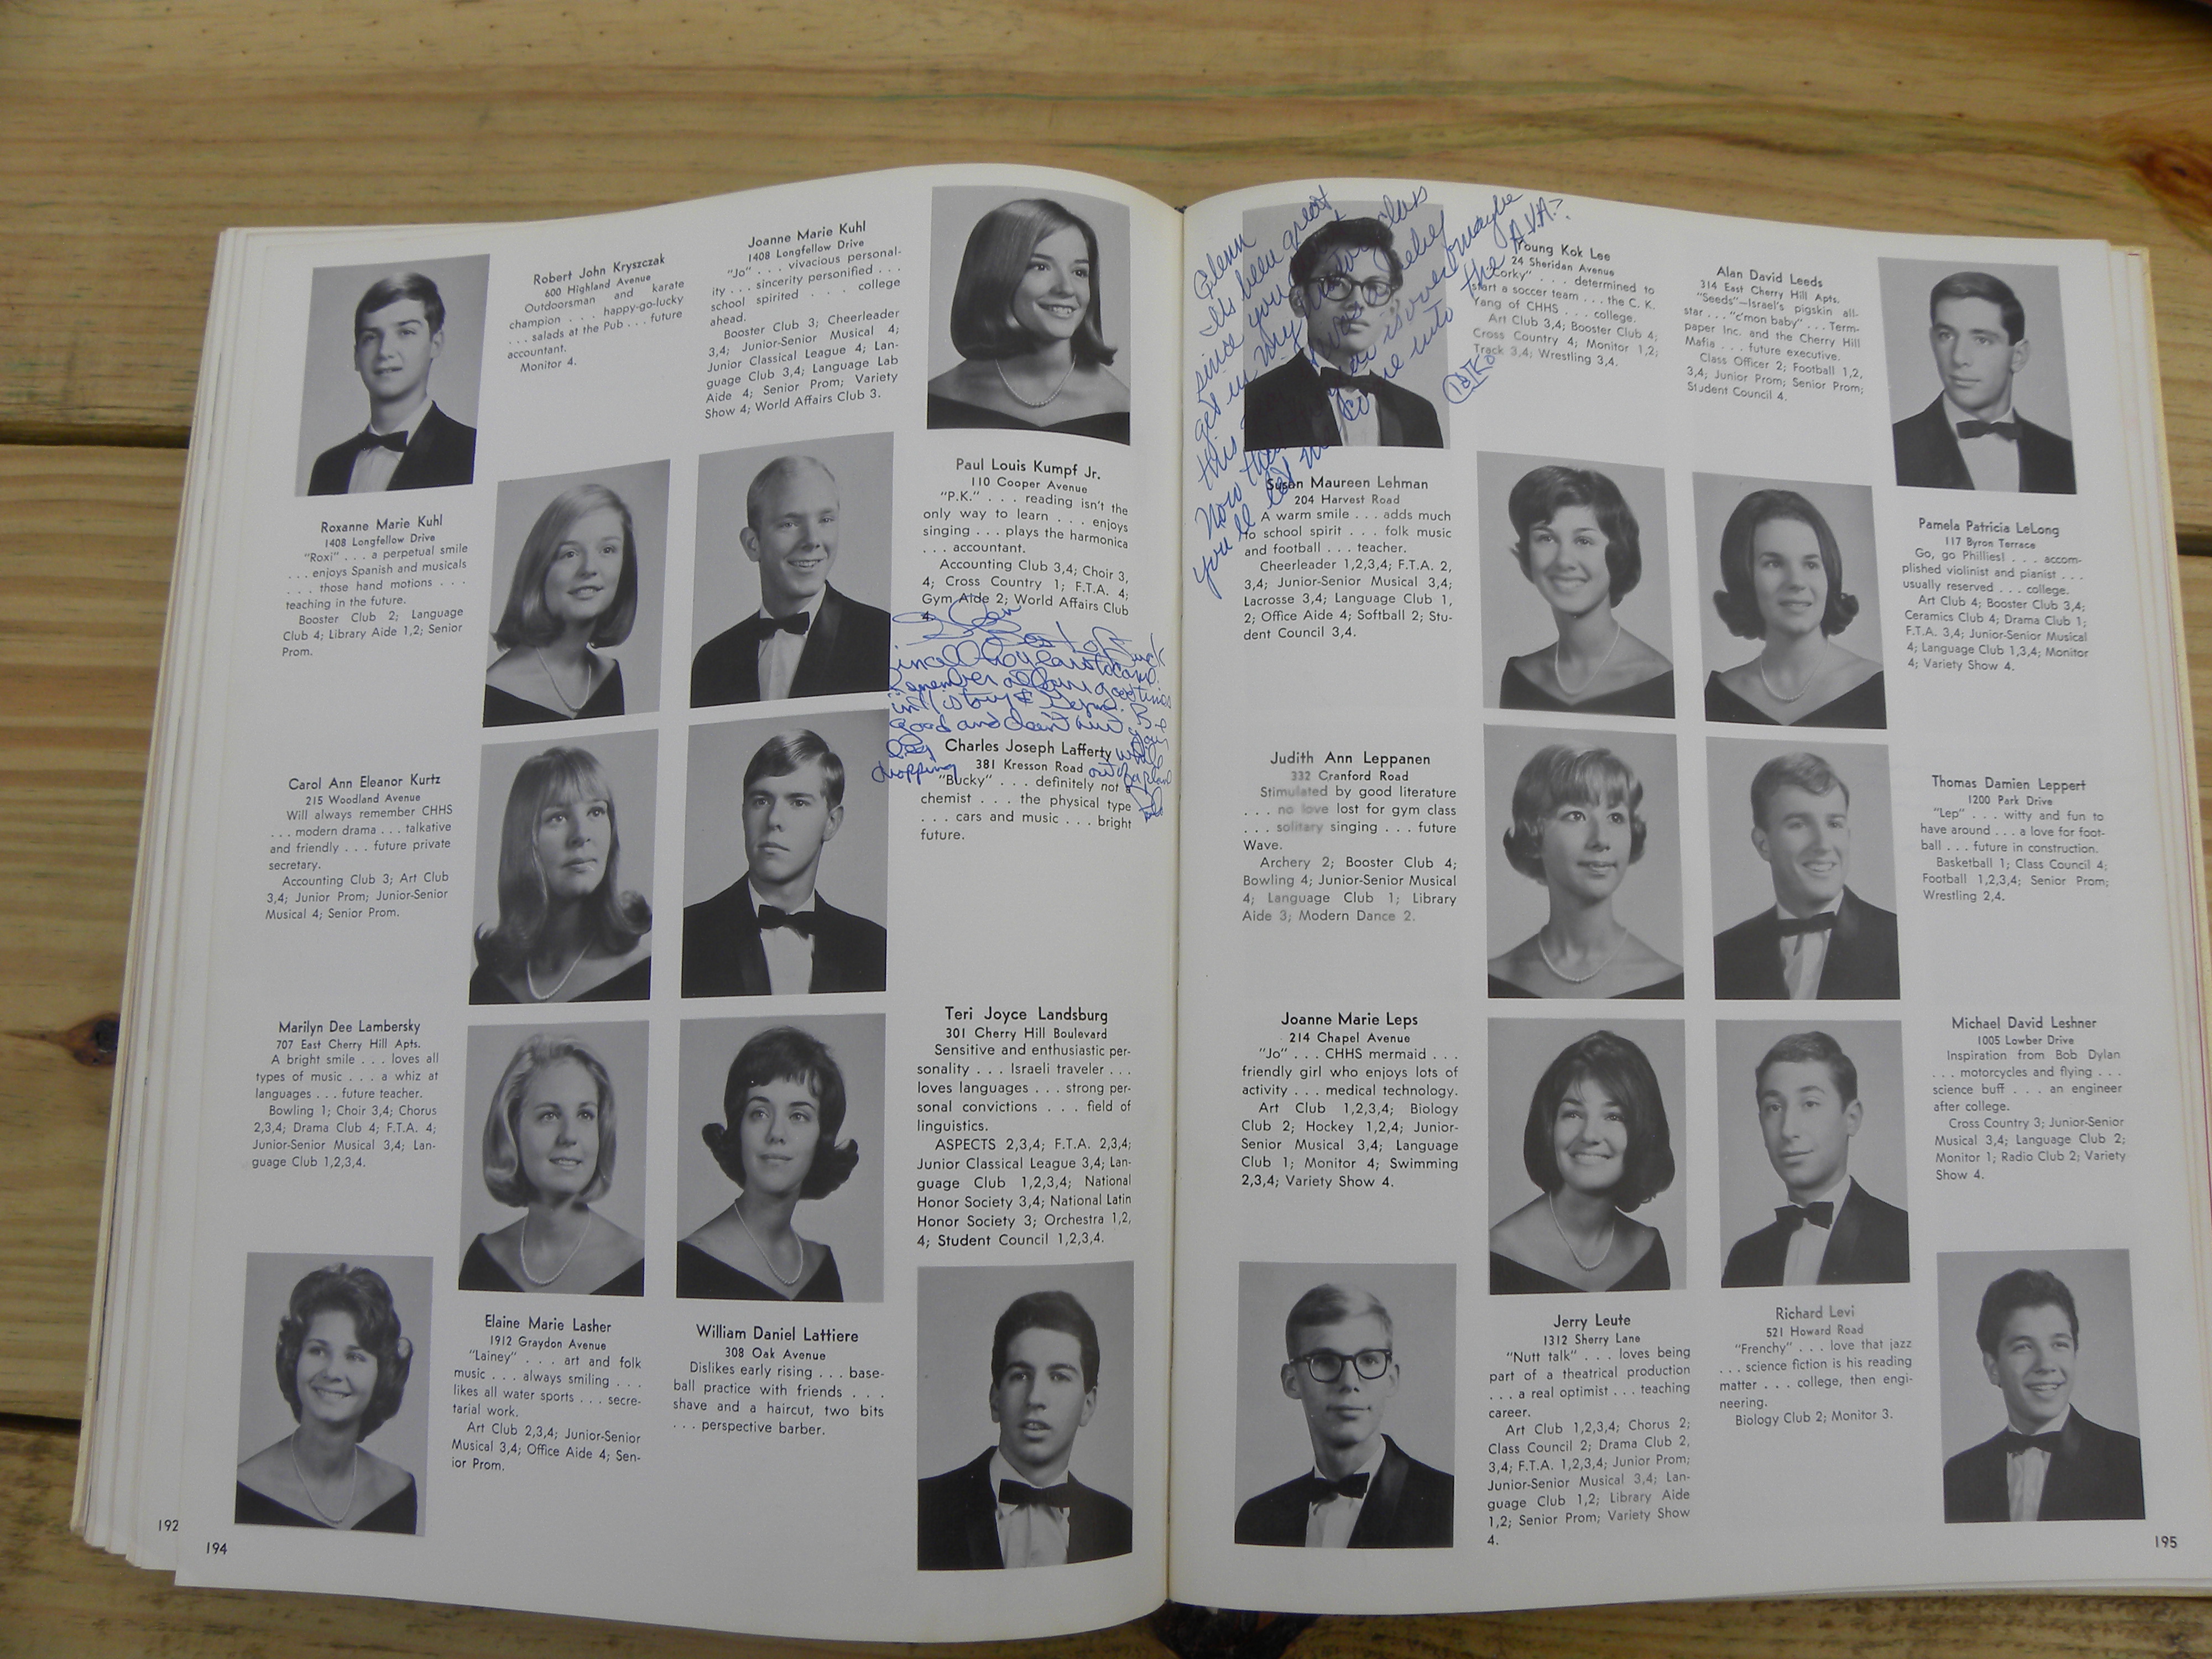 Robert John Kryszczak
600 Highland Avenue
Outdoorsman and karate
champion . . . happy-go-lucky
. . . salads at the Pub . . . future
accountant.
Monitor 4.
Joanne Marie Kuhl
1408 Longfellow Drive
"Jo" . . . vivacious personal-
ity . . . sincerity personified . . .
school spirited . . . college
ahead.
Booster Club 3; Cheerleader
3,4; Junior-Senior Musical 4;
Junior Classical League 4; Lan-
guage Club 3,4; Language Lab
Aide 4; Senior Prom; Variety
Show 4; World Affairs Club 3.
Roxanne Marie Kuhl
1408 Longfellow Drive
"Roxi" . . . a perpetual smile
. . . enjoys Spanish and musicals
. . . those hand motions . . .
teaching in the future.
Booster Club 2; Language
Club 4; Library Aide 1,2; Senior
Prom.
Paul Louis Kumpf Jr.
110 Cooper Avenue
"P.K." . . . reading isn't the
only way to learn . . . enjoys
singing . . . plays the harmonica
. . . accountant.
Accounting Club 3,4; Choir 3,
4; Cross Country 1; F.T.A. 4;
Gym Aide 2; World Affairs Club
4.
Best of Luck
in all you
Remember all our good times
in History & Gym. Be
good and don't hurt your
leg while
chopping out of
Carol Ann Eleanor Kurtz
215 Woodland Avenue
Will always remember CHHS
. . . modern drama . . . talkative
and friendly . . . future private
secretary.
Accounting Club 3; Art Club
3,4; Junior Prom; Junior-Senior
Musical 4; Senior Prom.
Charles Joseph Lafferty
381 Kresson Road
"Bucky" . . . definitely not a
chemist . . . the physical type
. . . cars and music . . . bright
future.
Marilyn Dee Lambersky
707 East Cherry Hill Apts.
A bright smile . . . loves all
types of music . . . a whiz at
languages . . . future teacher.
Bowling 1; Choir 3,4; Chorus
2,3,4; Drama Club 4; F.T.A. 4;
Junior-Senior Musical 3,4; Lan-
guage Club 1,2,3,4.
Teri Joyce Landsburg
301 Cherry Hill Boulevard
Sensitive and enthusiastic per-
sonality . . . Israeli traveler . . .
loves languages . . . strong per-
sonal convictions . . . field of
linguistics.
ASPECTS 2,3,4; F.T.A. 2,3,4;
Junior Classical League 3,4; Lan-
guage Club 1,2,3,4; National
Honor Society 3,4; National Latin
Honor Society 3; Orchestra 1,2,
4; Student Council 1,2,3,4.
Elaine Marie Lasher
1912 Graydon Avenue
"Lainey" . . . art and folk
music . . . always smiling . . .
likes all water sports . . . secre-
tarial work.
Art Club 2,3,4; Junior-Senior
Musical 3,4; Office Aide 4; Sen-
ior Prom.
William Daniel Lattiere
308 Oak Avenue
Dislikes early rising . . . base-
ball practice with friends . . .
shave and a haircut, two bits
. . . perspective barber.
192
194
Glenn
Its been great
since you
get in my class
this
Now that year is over maybe
you'll let me come into the AVA?
Young Kok Lee
24 Sheridan Avenue
"Corky" . . . determined to
start a soccer team . . . the C. K.
Yang of CHHS . . . college.
Art Club 3,4; Booster Club 4;
Cross Country 4; Monitor 1,2;
Track 3,4; Wrestling 3,4.
Alan David Leeds
314 East Cherry Hill Apts.
"Seeds"—Israel's pigskin all-
star . . . "c'mon baby" . . . Term-
paper Inc. and the Cherry Hill
Mafia . . . future executive.
Class Officer 2; Football 1,2,
3,4; Junior Prom; Senior Prom;
Student Council 4.
Susan Maureen Lehman
204 Harvest Road
A warm smile . . . adds much
to school spirit . . . folk music
and football . . . teacher.
Cheerleader 1,2,3,4; F.T.A. 2,
3,4; Junior-Senior Musical 3,4;
Lacrosse 3,4; Language Club 1,
2; Office Aide 4; Softball 2; Stu-
dent Council 3,4.
Pamela Patricia LeLong
117 Byron Terrace
Go, go Phillies! . . . accom-
plished violinist and pianist . . .
usually reserved . . . college.
Art Club 4; Booster Club 3,4;
Ceramics Club 4; Drama Club 1;
F.T.A. 3,4; Junior-Senior Musical
4; Language Club 1,3,4; Monitor
4; Variety Show 4.
Judith Ann Leppanen
332 Cranford Road
Stimulated by good literature
. . . no love lost for gym class
. . . solitary singing . . . future
Wave.
Archery 2; Booster Club 4;
Bowling 4; Junior-Senior Musical
4; Language Club 1; Library
Aide 3; Modern Dance 2.
Thomas Damien Leppert
1200 Park Drive
"Lep" . . . witty and fun to
have around . . . a love for foot-
ball . . . future in construction.
Basketball 1; Class Council 4;
Football 1,2,3,4; Senior Prom;
Wrestling 2,4.
Joanne Marie Leps
214 Chapel Avenue
"Jo" . . . CHHS mermaid . . .
friendly girl who enjoys lots of
activity . . . medical technology.
Art Club 1,2,3,4; Biology
Club 2; Hockey 1,2,4; Junior-
Senior Musical 3,4; Language
Club 1; Monitor 4; Swimming
2,3,4; Variety Show 4.
Michael David Leshner
1005 Lowber Drive
Inspiration from Bob Dylan
. . . motorcycles and flying . . .
science buff . . . an engineer
after college.
Cross Country 3; Junior-Senior
Musical 3,4; Language Club 2;
Monitor 1; Radio Club 2; Variety
Show 4.
Jerry Leute
1312 Sherry Lane
"Nutt talk" . . . loves being
part of a theatrical production
. . . a real optimist . . . teaching
career.
Art Club 1,2,3,4; Chorus 2;
Class Council 2; Drama Club 2,
3,4; F.T.A. 1,2,3,4; Junior Prom;
Junior-Senior Musical 3,4; Lan-
guage Club 1,2; Library Aide
1,2; Senior Prom; Variety Show
4.
Richard Levi
521 Howard Road
"Frenchy" . . . love that jazz
. . . science fiction is his reading
matter . . . college, then engi-
neering.
Biology Club 2; Monitor 3.
195